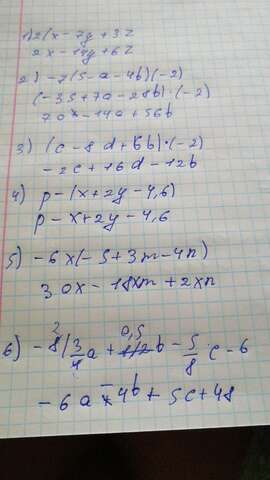 1) 2(x - 7y + 3z
2x - 14y + 6z
2) -7(5 - a - 4b)(-2)
(-35 + 7a - 28b)·(-2)
70 - 14a + 56b
3) (c - 8d + 6b)·(-2)
-2c + 16d - 12b
4) p - (x + 2y - 4,6)
p - x + 2y - 4,6
5) -6x(-5 + 3m - 4n)
30x - 18xm + 2xn
6) -8(3/4 a + 0,5 b - 5/8 c - 6
-6a - 4b + 5c + 48